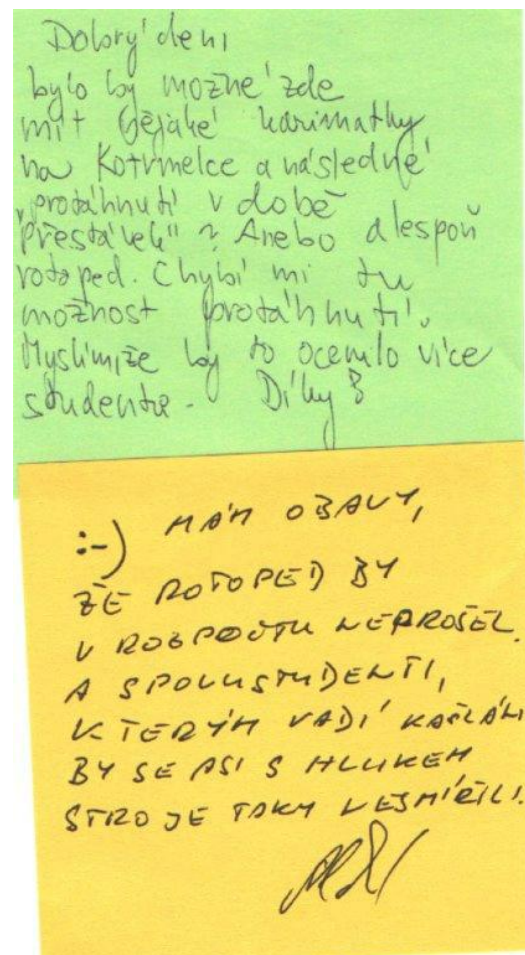 Dobrý den,
bylo by možné zde
mít nějaké karimatky
na kotrmelce a následné
protáhnutí v době
"přestávek"? Anebo alespoň
rotoped. Chybí mi tu
možnost protáhnutí.
Myslím, že by to ocenilo více
studentů. Díky
:-) MÁM OBAVY,
ŽE ROTOPED BY
V ROZPOČTU NEPROŠEL.
A SPOLUSTUDENTI,
KTERÝM VADÍ KAŠLÁNÍ
BY SE ASI S HLUKEM
STROJE TAKY NESMÍŘILI.